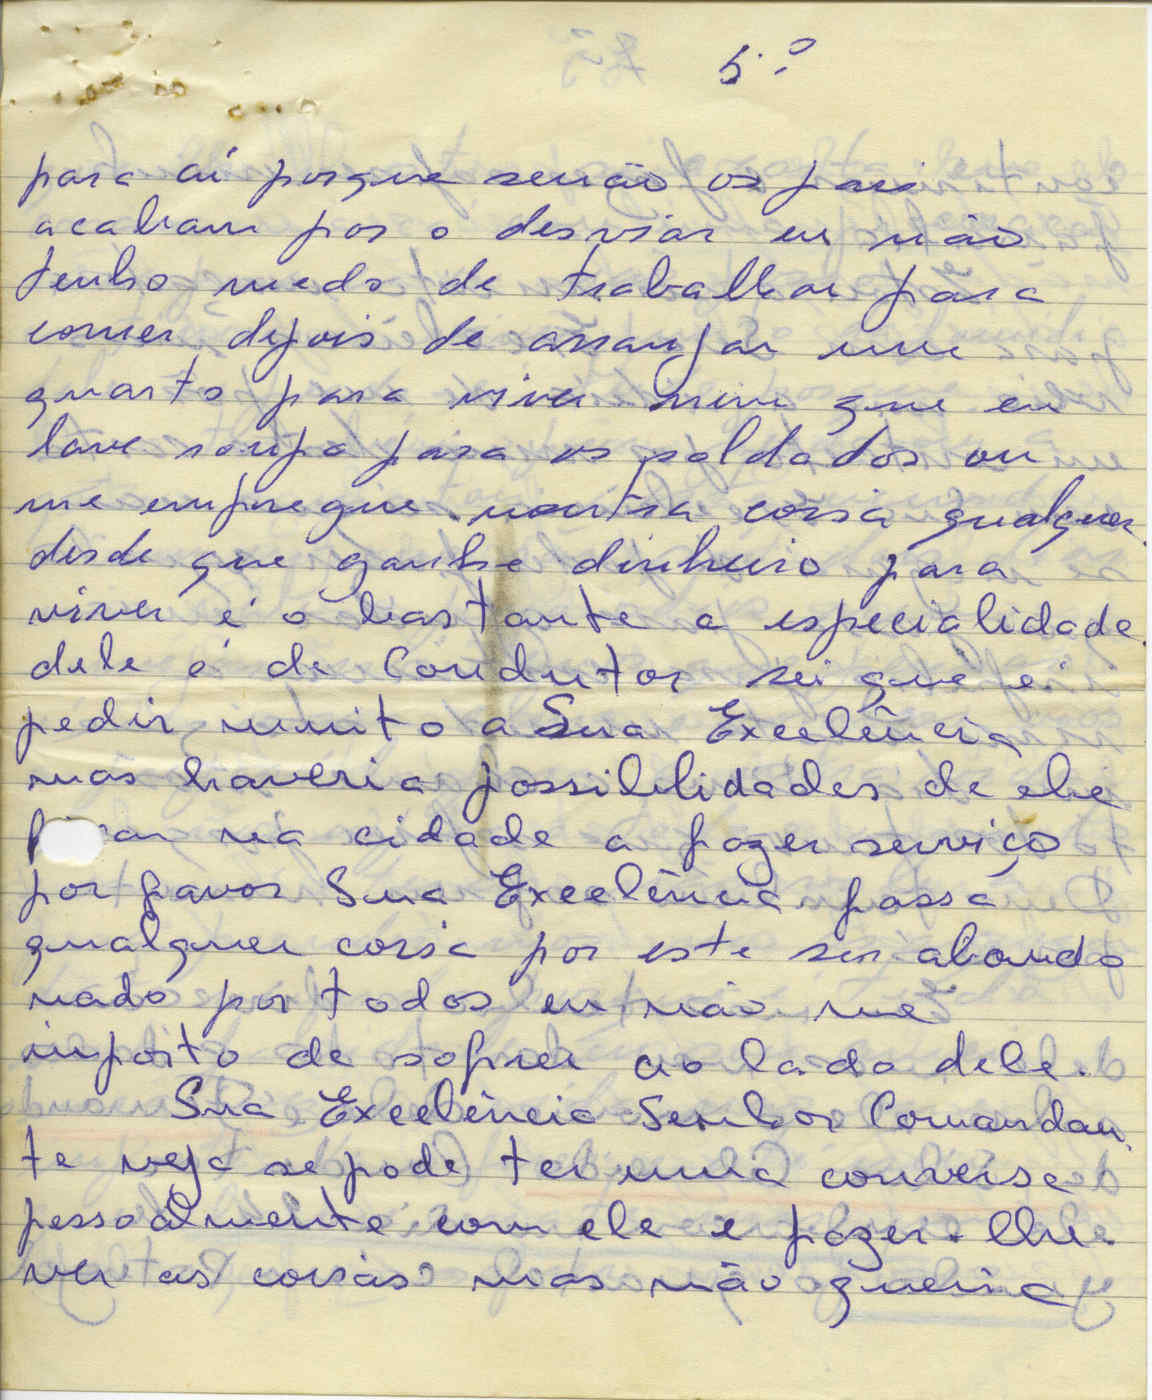 5.º
para aí porque senão os pais
acabam por o desviar eu não
tenho medo de trabalhar para
comer, depois de arranjar um
quarto para viver nem que eu
lave roupa para os soldados ou
me empregue noutra coisa qualquer
desde que ganhe dinheiro para
viver é o bastante a especialidade
dele é de Condutor sei que é
pedir muito a Sua Excelência
mas haveria possibilidades de ele
na cidade a fazer serviço
por favor Sua Excelência faça
qualquer coisa por este ser abando
nado por todos eu não me
importo de sofrer ao lado dele.
Sua Excelência Senhor Comandan,
te veja se pode ter uma conversa
pessoalmente com ele e fazer-lhe
ver as coisas mas não queria